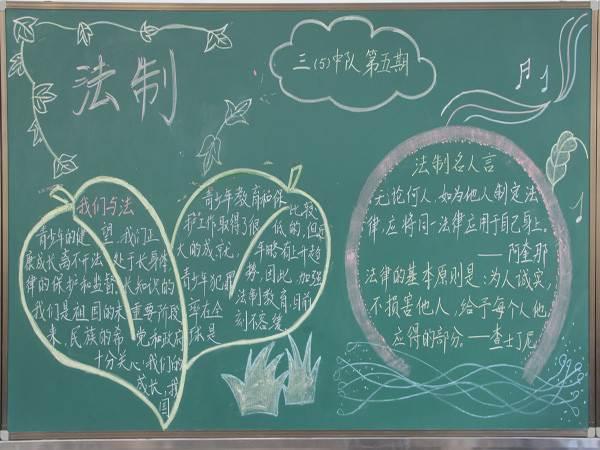 法制
三(5)中队 第五期
我们与法
青少年的健
康成长离不开法
律的保护和监督
我们是祖国的未
来,民族的希
望,我们正
处于长身体
长知识的
重要阶段
党和政府
十分关心我们的
成长,我
国
青少年教育和保
护工作取得了很
大的成就,
青少年犯罪
率在全
球是
比较
低的,但近
年略有上升趋
势,因此,加强
法制教育,目前
刻不容缓。
法制名人言
无论何人,如为他人制定法
律,应将同一法律应用于自己身上。
——阿奎那
法律的基本原则是:为人诚实,
不损害他人,给予每个人他
应得的部分。——查士丁尼